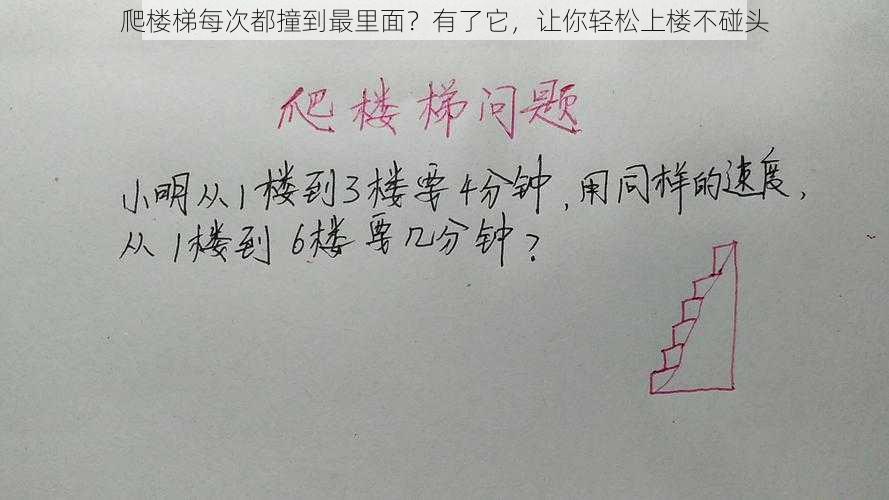 爬楼梯每次都撞到最里面？有了它，让你轻松上楼不碰头
爬楼梯问题
小明从1楼到3楼要4分钟，用同样的速度，
从1楼到6楼要几分钟？